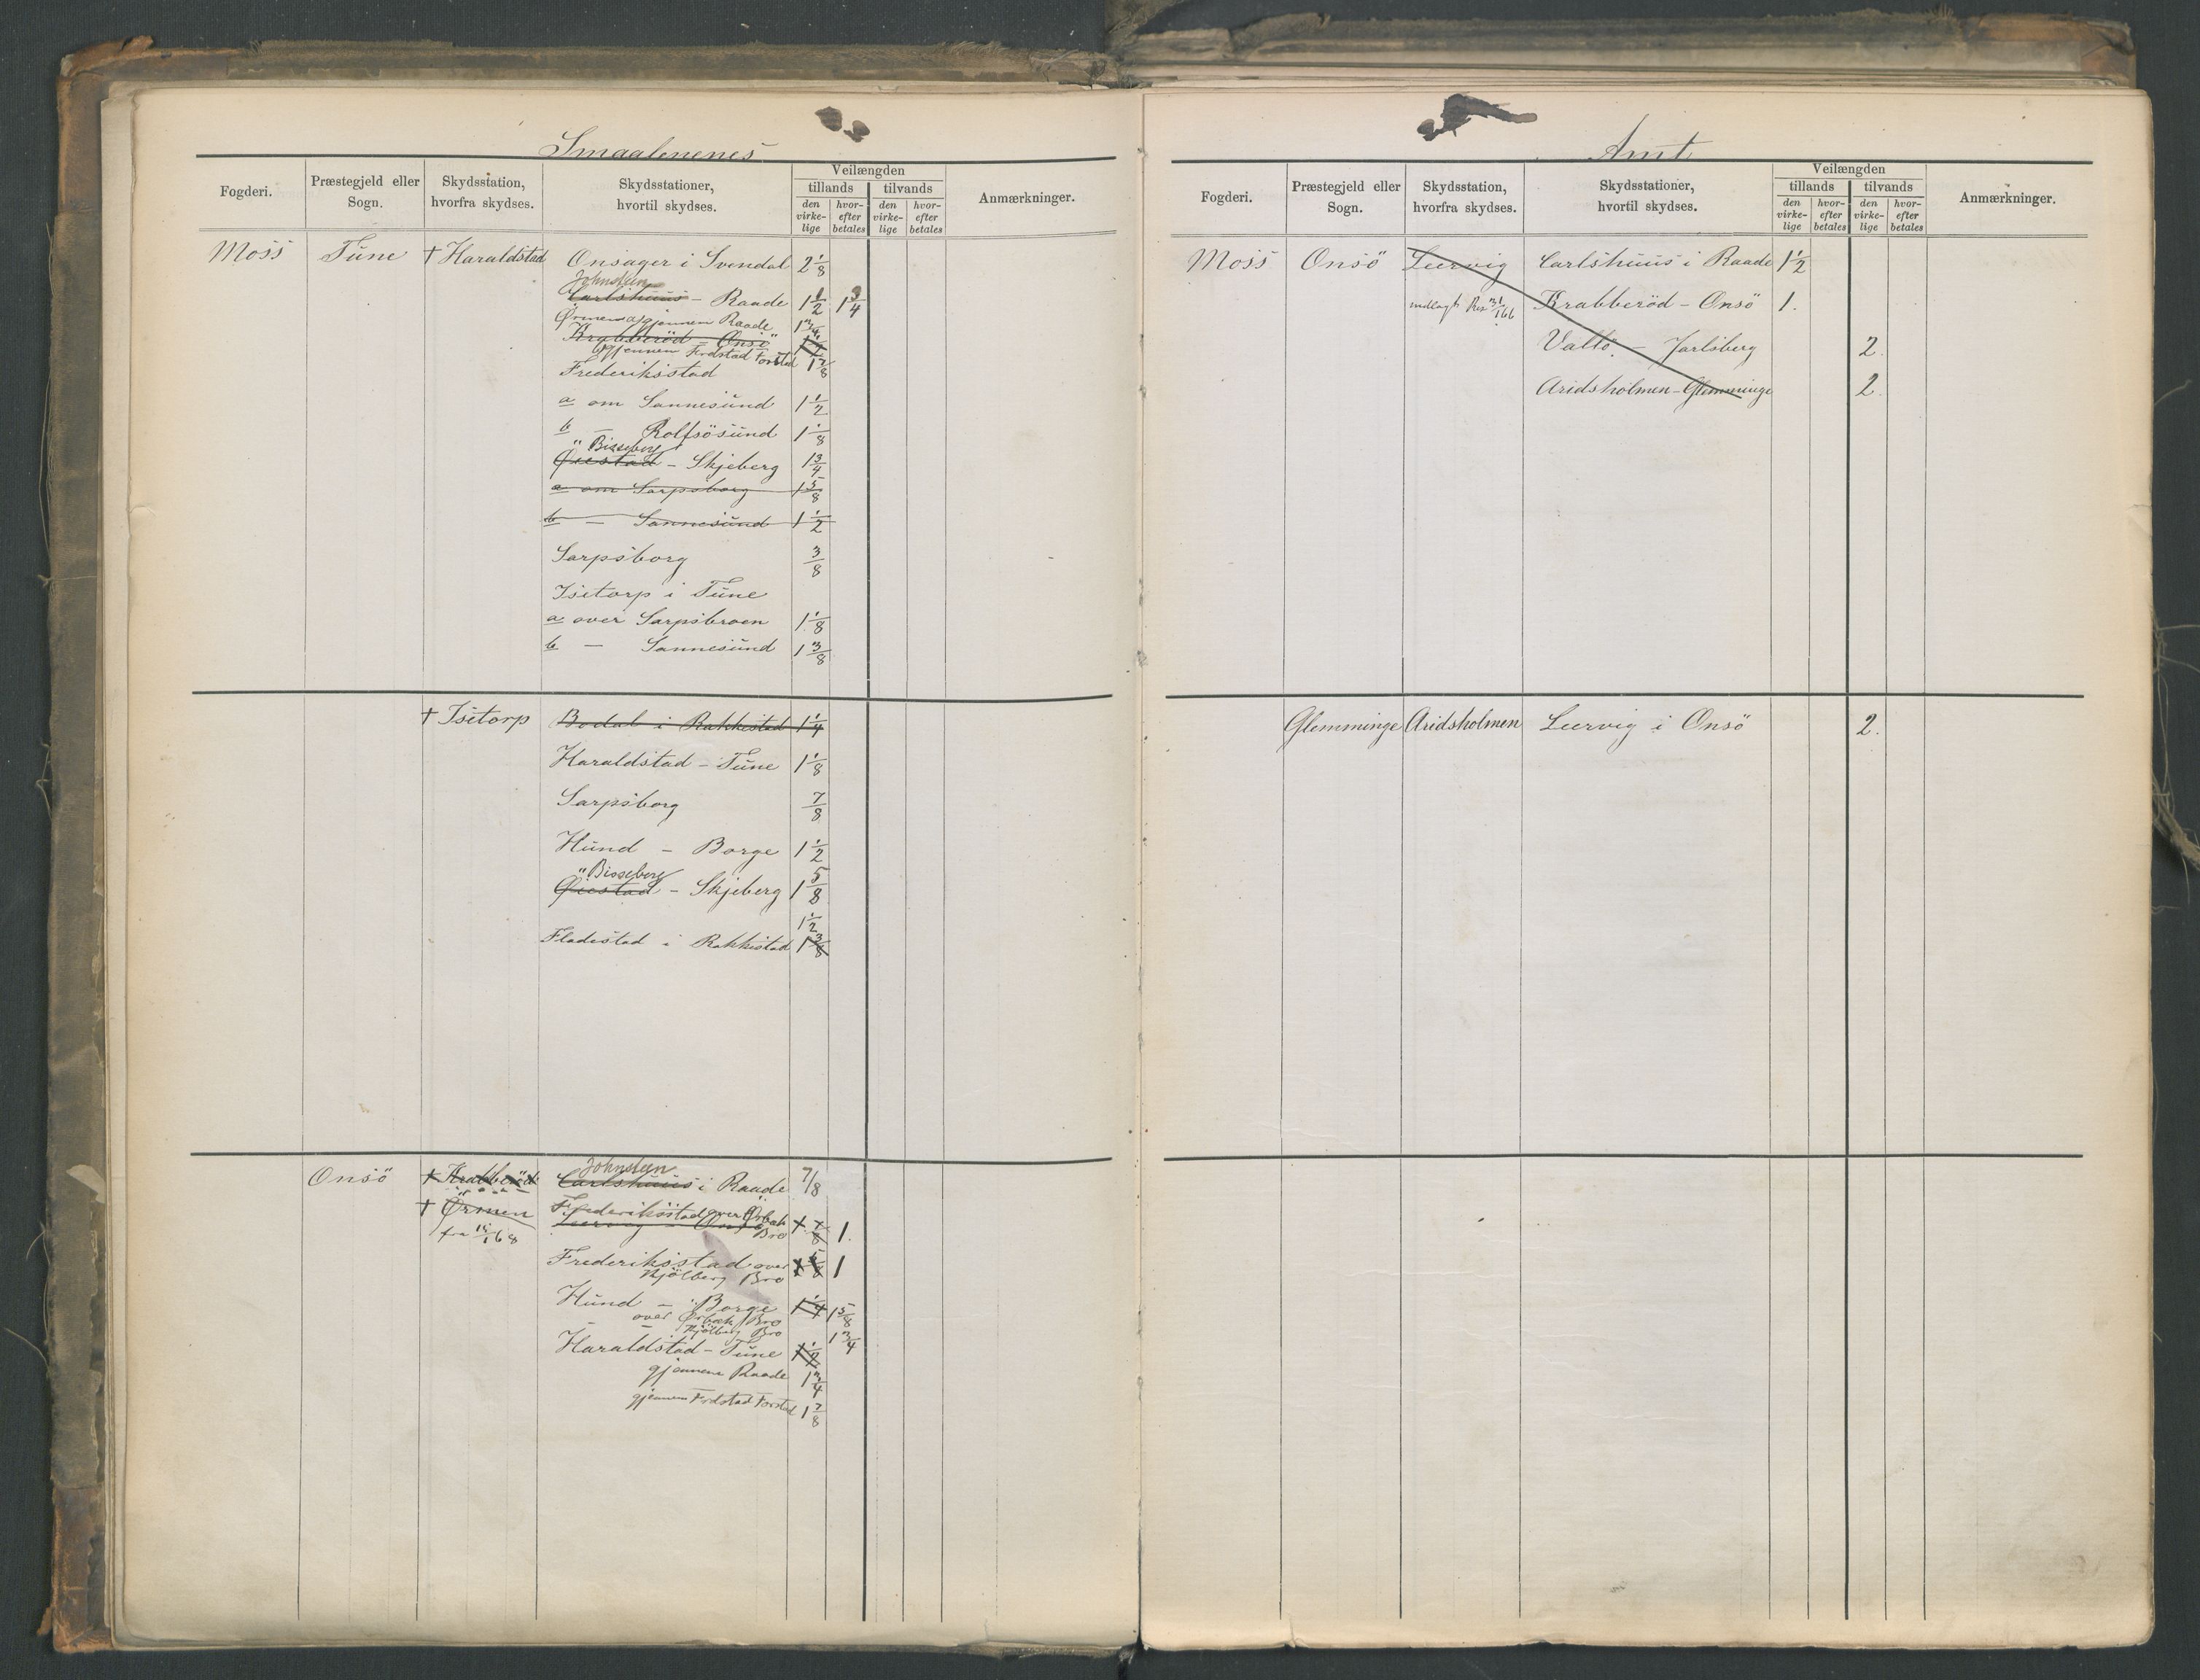 Smaalenenes
Fogderi.
Præstegjeld eller Sogn.
Skydsstation, hvorfra skydses.
Skydsstationer, hvortil skydses.
Veilængden
tillands
tilvands
den virke-lige
hvor-efter betales
den virke-lige
hvor-efter betales
Anmærkninger.
Moss Tune † Haraldstad Onsager i Svendal 2 1/8
Johnsteen
Carlshuus - Raade 1 1/2 1 3/4
Ørmen a, gjennem Raade 1 3/4
Krabberöd - Onsö
b, gjennem Fredstad Forstad 1 7/8
Frederiksstad
a om Sannesund 1 1/2
b — Rolfsösund 1 1/8
" Bisseberg
Øiestad - Skjeberg 1 3/4
a om Sarpsborg 1 5/8
b — Sannesund 1 1/2
Sarpsborg 3/8
Isetorp i Tune
a over Sarpsbroen 1 1/8
b — Sannesund 1 3/8
† Isetorp Bodal i Rakkestad 1 1/4
Haraldstad - Tune 1 1/8
Sarpsborg 7/8
Hund - Borge 1 1/2
" Bisseberg
Øiestad - Skjeberg 1 5/8
1 1/2
Fladestad i Rakkestad 1 3/8
Johnsteen
Onsö † Krabberöd Carlshuus i Raade 7/8
† Ørmen Frederiksstad over Ørbæk Bro 1.
Leervig - Onsö
fra
Frederiksstad over 1
Kjölberg Bro
Hund - Borge 1 1/4 1 5/8
over Ørbæk Bro
— Kjölberg Bro 1 3/4
Haraldstad - Tune 1 1/2
gjennem Raade 1 3/4
gjennem Fredstad Forstad 1 7/8
Amt
Fogderi.
Præstegjeld eller Sogn.
Skydsstation, hvorfra skydses.
Skydsstationer, hvortil skydses.
Veilængden
tillands
tilvands
den virke-lige
hvor-efter betales
den virke-lige
hvor-efter betales
Anmærkninger.
Moss Onsö Leervig Carlshuus i Raade 1 1/2
indlagt Krabberöd - Onsö 1.
Vallö - Jarlsberg 2.
Aridsholmen - Glemminge 2.
Glemminge Aridsholmen Leervig i Onsö 2.